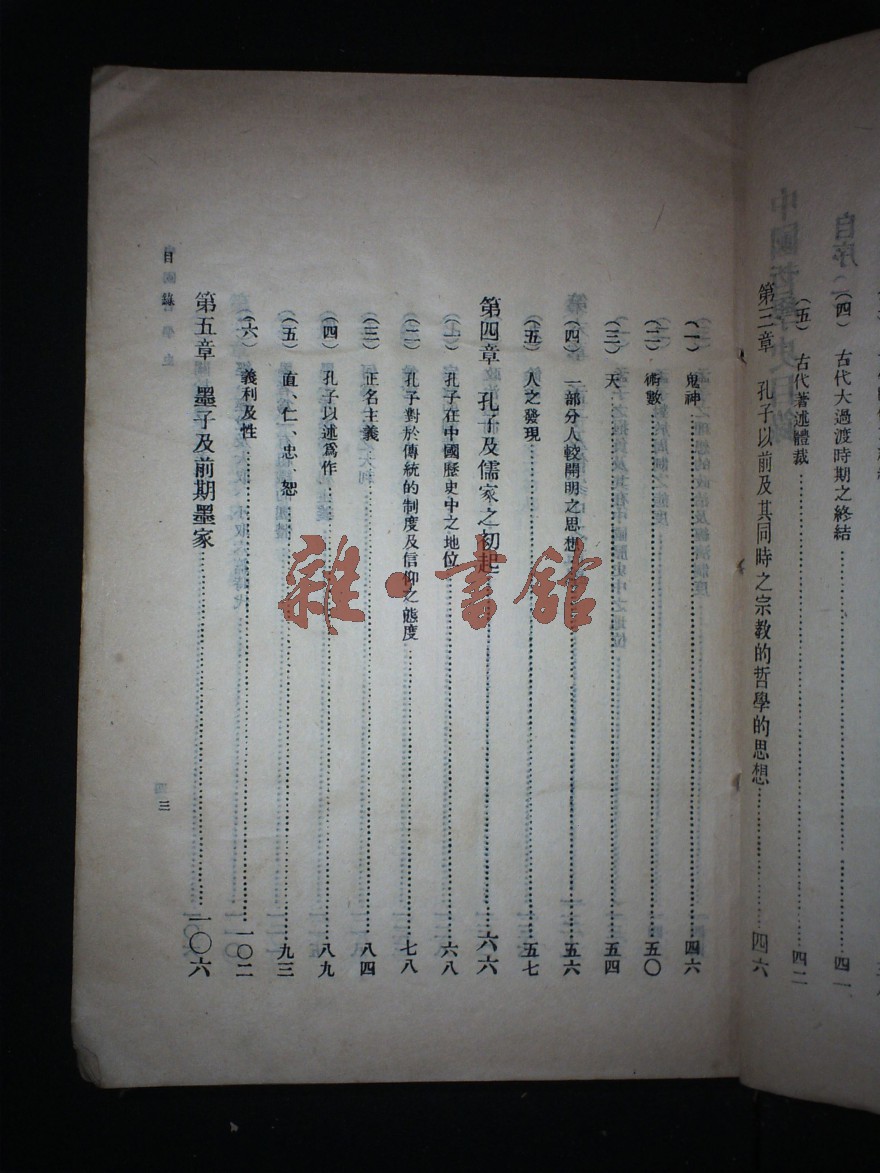 (四) 古代大過渡時期之終結……四一
(五) 古代著述體裁……四二
第三章 孔子以前及其同時之宗教的哲學的思想……四六
(一) 鬼神……四六
(二) 術數……五〇
(三) 天……五四
(四) 一部分人較開明之思想……五六
(五) 人之發現……五七
第四章 孔子及儒家之初起……六六
(一) 孔子在中國歷史中之地位……六八
(二) 孔子對於傳統的制度及信仰之態度……七八
(三) 正名主義……八四
(四) 孔子以述爲作……八九
(五) 直、仁、忠、恕……九三
(六) 義利及性……一〇二
第五章 墨子及前期墨家……一〇六
目錄
三
雜·書館